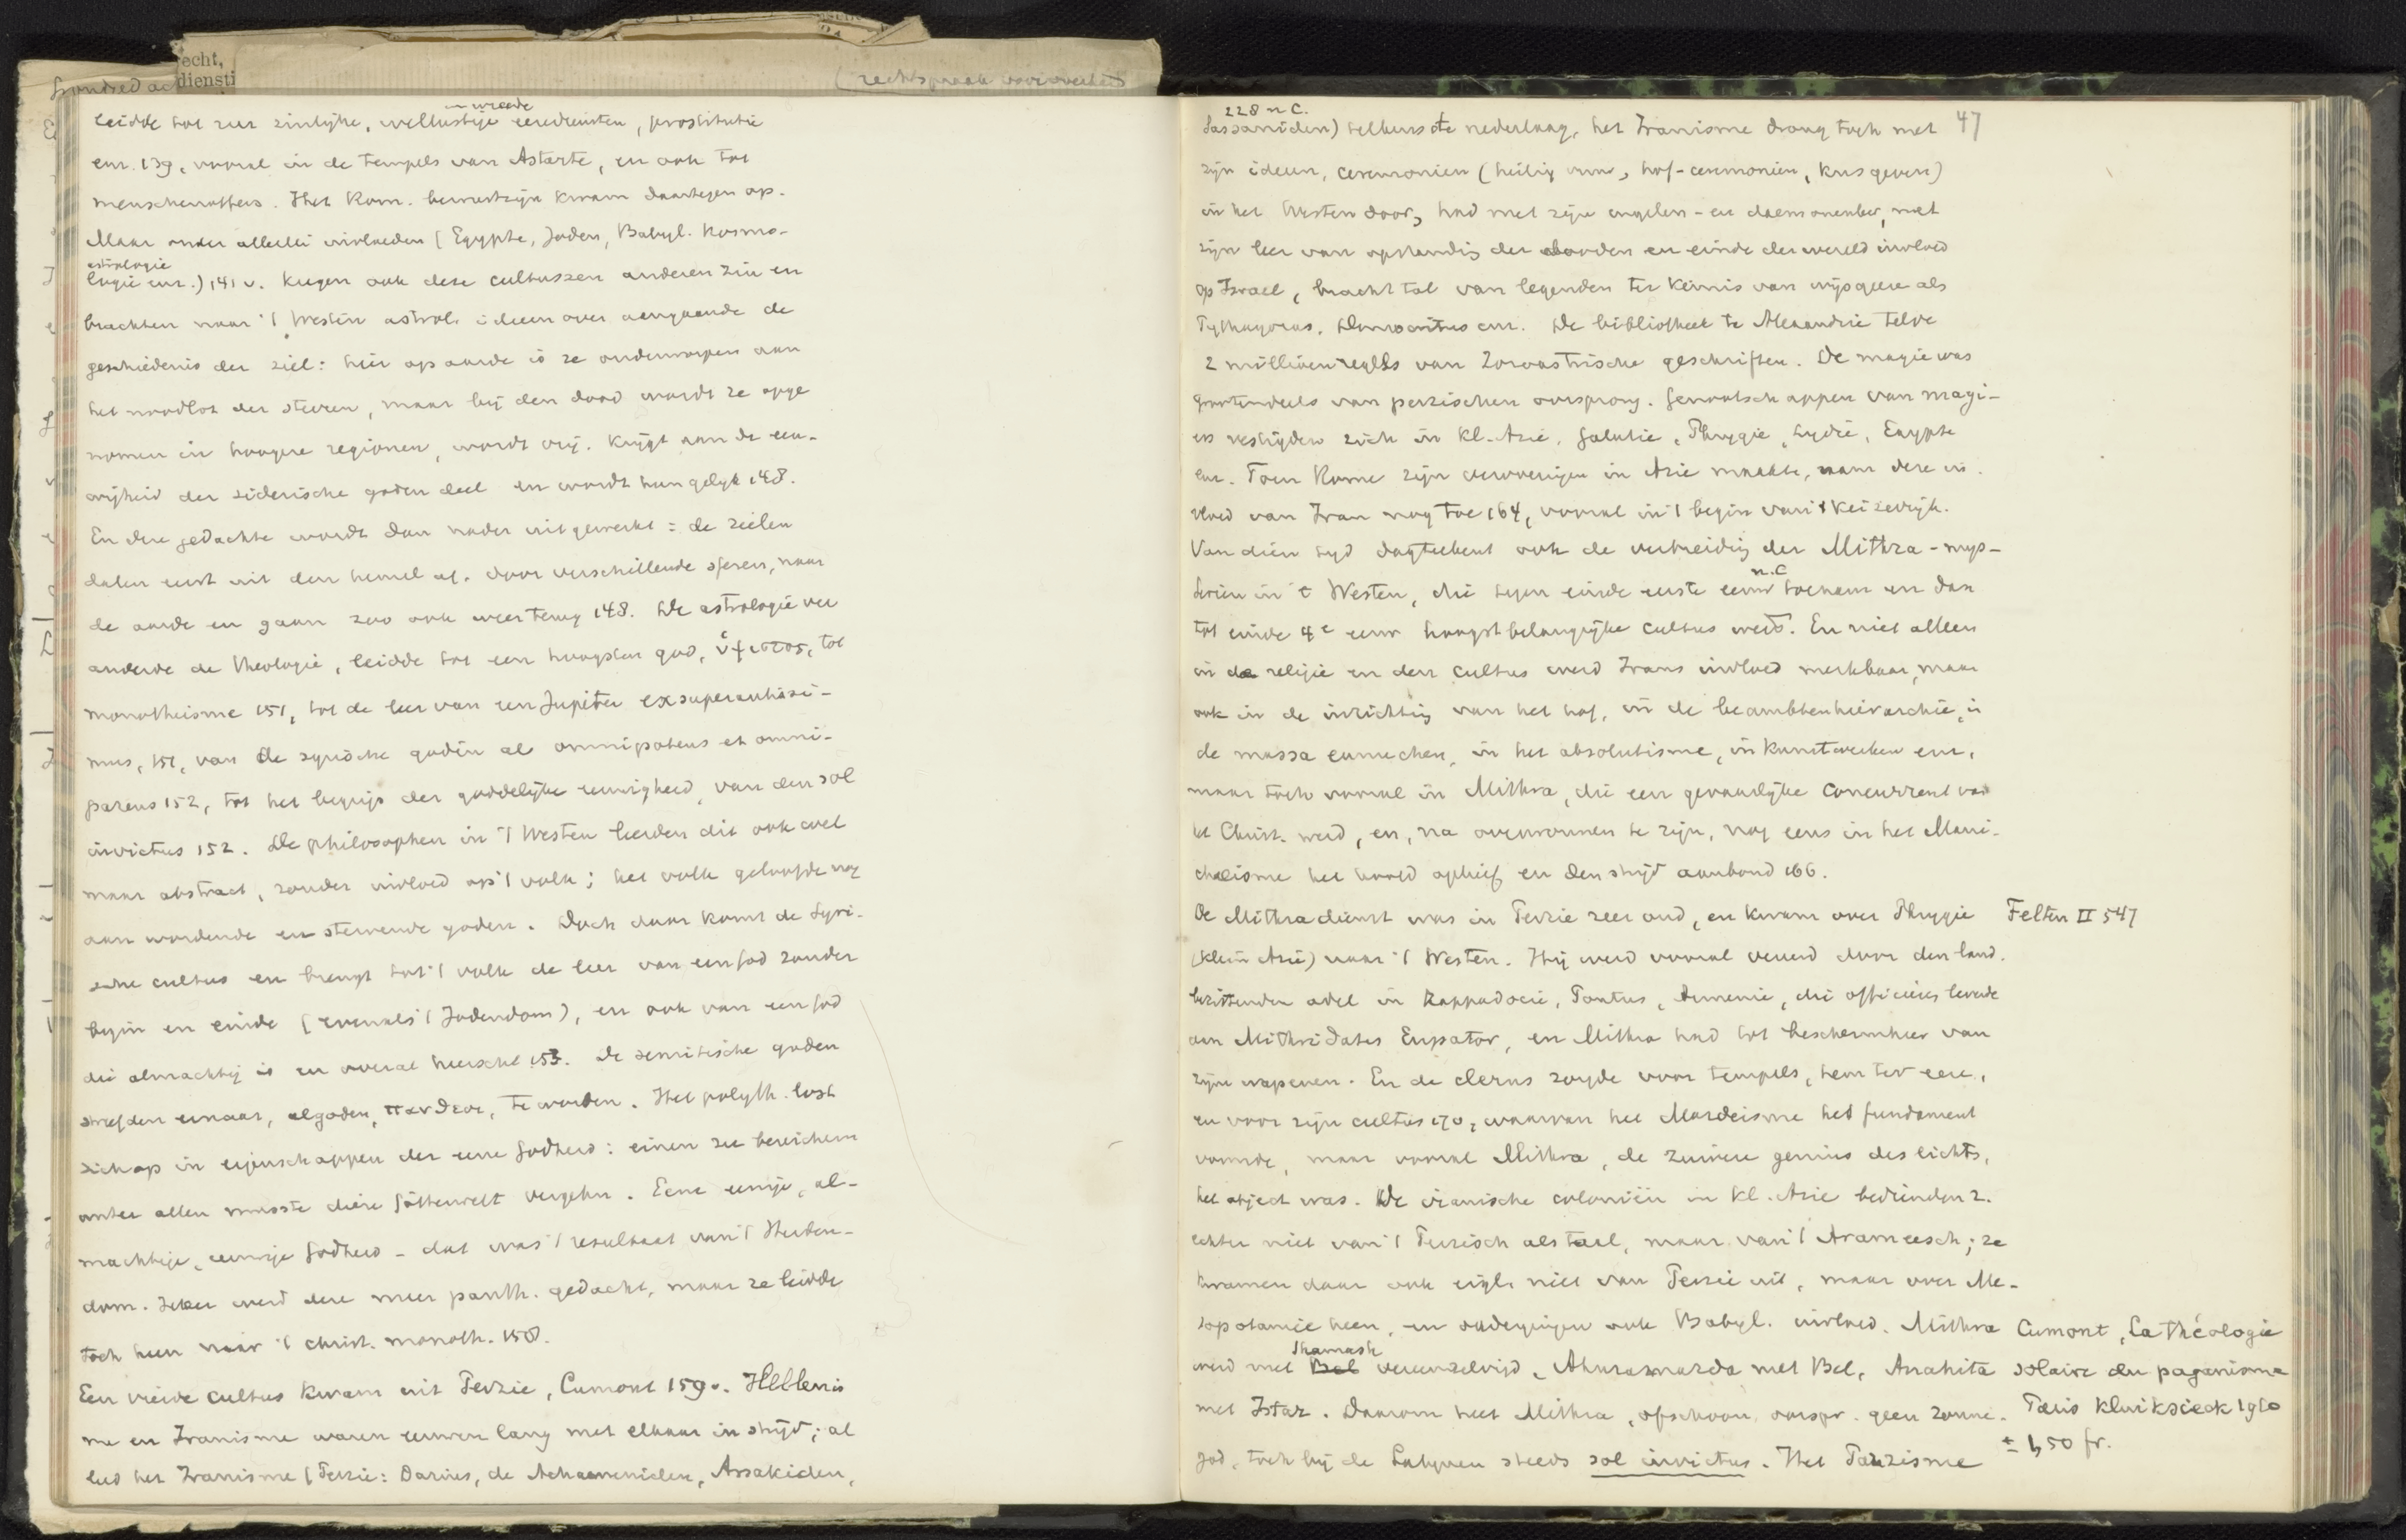 echt,
diensti
(rechtspraak
en wreede
leidde tot zeer zinlijke, wellustige eerediensten, prostitutie
enz. 139, vooral in de tempels van Astarte, en ook tot
menschenoffers. Het Rom. bewustzijn kwam daartegen op.
Maar onder allerlei invloeden (Egypte, Joden, Babyl. kosmo-
astrologie
logie enz.) 141 v. kregen ook deze cultussen anderen zin en
brachten naar 't Westen astrol. ideen over aengaande de
geschiedenis der ziel: hier op aarde is ze onderworpen aan
het noodlot der sterren, maar bij den dood wordt ze opge
nomen in hoogere regionen, wordt vrij. krijgt aan de eeu-
wigheid der siderische goden deel en wordt hun gelijk 148.
En deze gedachte wordt dan nader uitgewerkt: de zielen
dalen eerst uit den hemel af, door verschillende sferen, naar
de aarde en gaan zoo ook weer terug 148. De astrologie ver
anderde de theologie, leidde tot een hoogsten god, ὕψιστος, tot
monotheisme 151, tot de leer van een Jupiter exsuperantissi-
mus, 151, van de syrische godin als omnipotens et omni-
parens 152, tot het begrip der goddelijke eeuwigheid, van den sol
invictus 152. De philosophen in 't Westen leerden dit ook wel
maar abstract, zonder invloed op 't volk; het volk geloofde nog
aan wordende en stervende goden. Doch daar komt de Syri-
sche cultus en brengt tot 't volk de leer van een God zonder
begin en einde (evenals 't Jodendom), en ook van een God
die almachtig is en overal heerscht 153. De semitische goden
streefden ernaar, algoden, πανθεοι, te worden. Het polyth. lost
zich op in eigenschappen der eene Godheid: einen zu bereichern
unter allen musste diese Götterwelt vergehn. Eene eenige, al-
machtige, eeuwige Godheid - dat was 't resultaat van 't Heiden-
dom. Zeker werd deze meer panth. gedacht, maar ze leidde
toch heen naar 't christ. monoth. 158.
Een vierde cultus kwam uit Perzie, Cumont 159v. Hellenis
me en Iranisme waren eeuwen lang met elkaar in strijd; al
leed het Iranisme (Perzie: Darius, de Achaemeniden, Arsakiden,
47
228 n C.
Sassaniden) telkens de nederlaag, het Iranisme drong toch met
zijn ideen, ceremonien (heilig vuur, hof-ceremonien, kus geven)
in het Westen door, had met zijn engelen- en daemonenleer, met
zijn leer van opstanding der dooden en einde der wereld invloed
op Israel, bracht tal van legenden ter kennis van wijsgeeren als
Pythagoras, Democritus enz. De bibliotheek te Alexandrie telde
2 millioen regels van Zoroastrische geschriften. De magie was
grootendeels van perzischen oorsprong. Genootschappen van magi-
ers vestigden zich in Kl-Azie, Galatie, Phrygie, Lydie, Egypte
enz. Toen Rome zijn veroveringen in Azie maakte, nam deze in-
vloed van Iran nog toe 164, vooral in 't begin van 't keizerrijk.
Van dien tijd dagteekent ook de verbreiding der Mithra-mys-
n.C
teriën in 't Westen, die tegen einde eerste eeuw toenam en dan
tot einde 4e eeuw hoogst belangrijke cultus werd. En niet alleen
in de religie en den cultus werd Irans invloed merkbaar, maar
ook in de inrichting van het hof, in de beambtenhierarchie, in
de massa eunuchen, in het absolutisme, in kunstwerken enz,
maar toch vooral in Mithra, die een gevaarlijke concurrent van
het Christ. werd, en, na overwonnen te zijn, nog eens in het Mani-
chaeisme het hoofd ophief en den strijd aanbond 166.
De Mithradienst was in Perzie zeer oud, en kwam over Phrygie
(Klein Azie) naar 't Westen. Hij werd vooral vereerd door den land-
bezittenden adel in Kappadocie, Pontus, Armenie, die officieren leverde
aan Mithridates Eupator, en Mithra had tot beschermheer van
zijne wapenen. En de clerus zorgde voor tempels, hem ter eere,
en voor zijn cultus 170, waarvan het Mazdeisme het fundament
vormde, maar vooral Mithra, de zuivere genius des lichts,
het object was. De iranische coloniën in Kl. Azie bedienden z.
echter niet van 't Perzisch als taal, maar van 't Arameesch; ze
kwamen daar ook eigl. niet van Perzie uit, maar over Me-
sopotamië heen, en ondergingen ook Babyl. invloed. Mithra
Shamash
werd met Bel vereenzelvigd, Ahuramazda met Bel, Anahita
met Istar. Daarom heet Mithra, ofschoon oorspr. geen zonne-
god, toch bij de Latijnen steeds sol invictus. Het Parzisme
Felten II 547
Cumont, La théologie
solaire du paganisme
Paris Klincksieck 1910
± 1,50 fr.